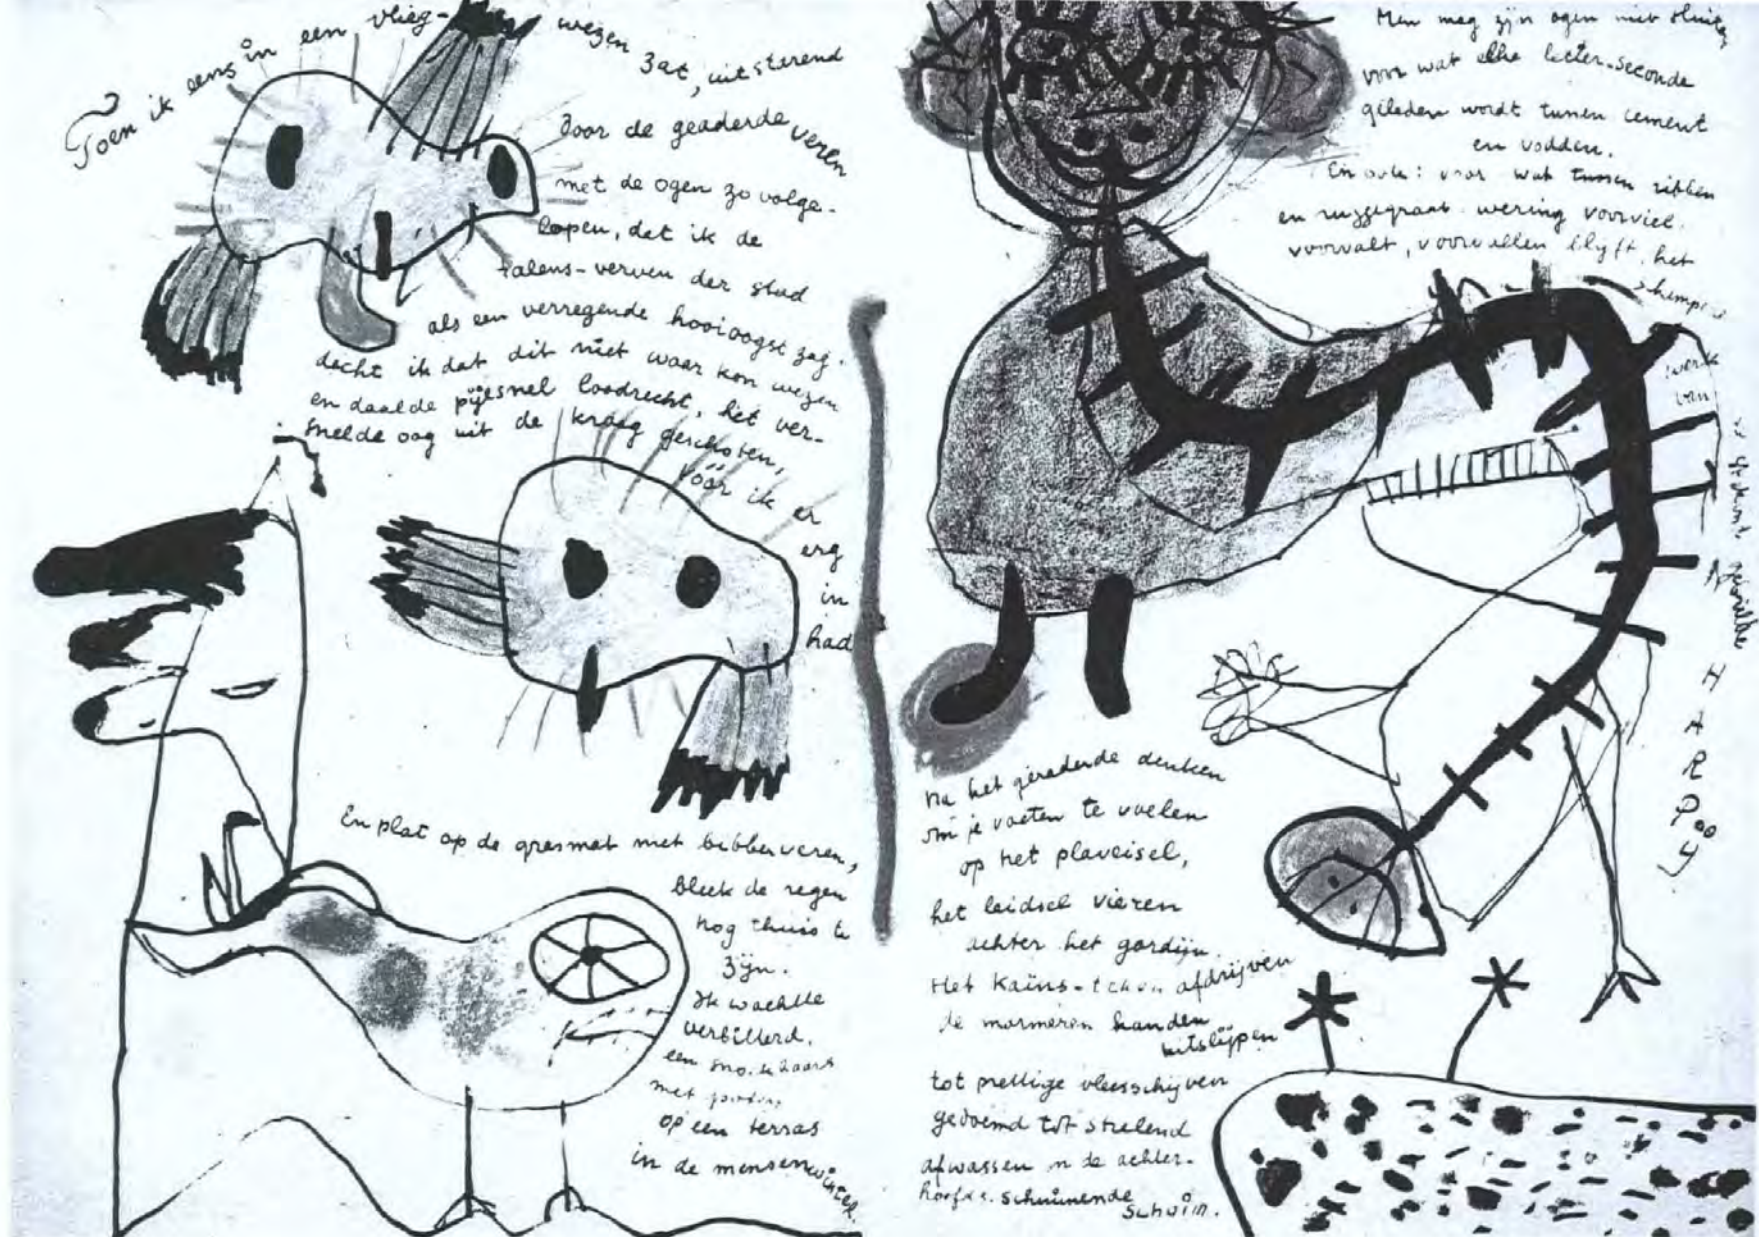 Toen ik eens in een vlieg-wezen zat, uitsterend
door de geaderde veren
met de ogen zo volge-
lopen, dat ik de
talens-verven der stad
als een verregende hooioogst zag.
dacht ik dat dit niet waar kon wezen
en daalde pijlsnel loodrecht, het ver-
snelde oog uit de kraag geschoten,
vóór ik er
erg
in
had
En plat op de grasmat met bibberveren,
bleek de regen
nog thuis te
zijn.
Ik wachtte
verbitterd.
een
met
op een terras
in de mensenwinter.
Men mag zijn ogen niet sluiten
voor wat elke letter-seconde
geleden wordt tussen cement
en vodden.
En ook: voor wat tussen ribben
en ruggegraat-wering voorviel,
voorvalt, voorvallen blijft, het
schimpen
werk
van
HARPOOY
Na het geraderde denken
om je voeten te voelen
op het plaveisel,
het leidsel vieren
achter het gordijn.
Het kaïns-teken afdrijven
de marmeren handen
uitslijpen
tot prettige vleesschijven
gedoemd tot strelend
afwassen in de achter-
hoofds. schuimende
schuim.